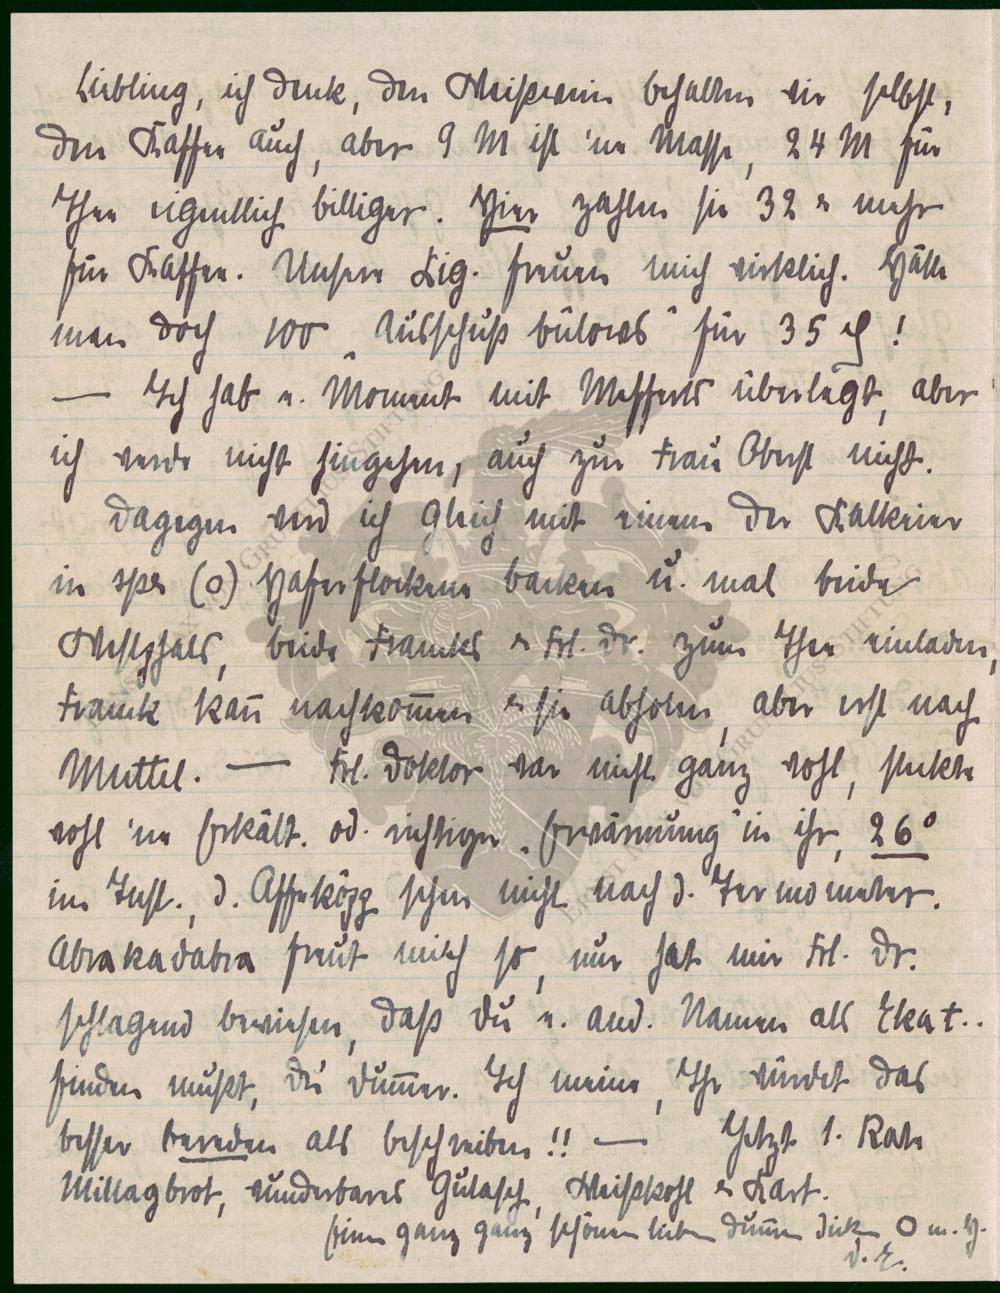 Liebling, ich denk, den Weißwein behalten wir selbst,
den Kaffee auch, aber 9 M ist 'ne Masse, 24 M für
Thee eigentlich billiger. Hier zahlen sie 32 & mehr
für Kaffee. Unsere Zig. freuen mich wirklich. Hätte
man doch 100 „Ausschuß bülows" für 35 ₰!
— Ich hab e. Moment mit Mefferts überlegt, aber
ich werde nicht hingehen, auch zur Frau Oberst nicht.
Dagegen werd ich gleich mit einem der Kalkeier
in spe (o) Haferflocken backen u. mal beide
Westphals, beide Francks & Frl. Dr. zum Thee einladen,
Franck kañ nachkom̄en & sie abholen, aber erst nach
Muttel. — Frl. Doktor war nicht ganz wohl, steckte
wohl 'ne Erkält. od. richtiger „Erwärmung" in ihr, 26°
im Inst., d. Affeköpp sehen nicht nach d. Termometer.
Abrakadabra freut mich so, nur hat mir Frl. Dr.
schlagend bewiesen, daß Du e. and. Namen als Ekat..
finden mußt, Du Dum̄er. Ich meine, Ihr würdet das
besser bereden als beschreiben!! — Jetzt 1. Rate
Mittagbrot, wunderbares Gulasch, Weißkohl & Kart.
Einen ganz ganz schönen lieben dum̄en dicken O m. H.
D. E.